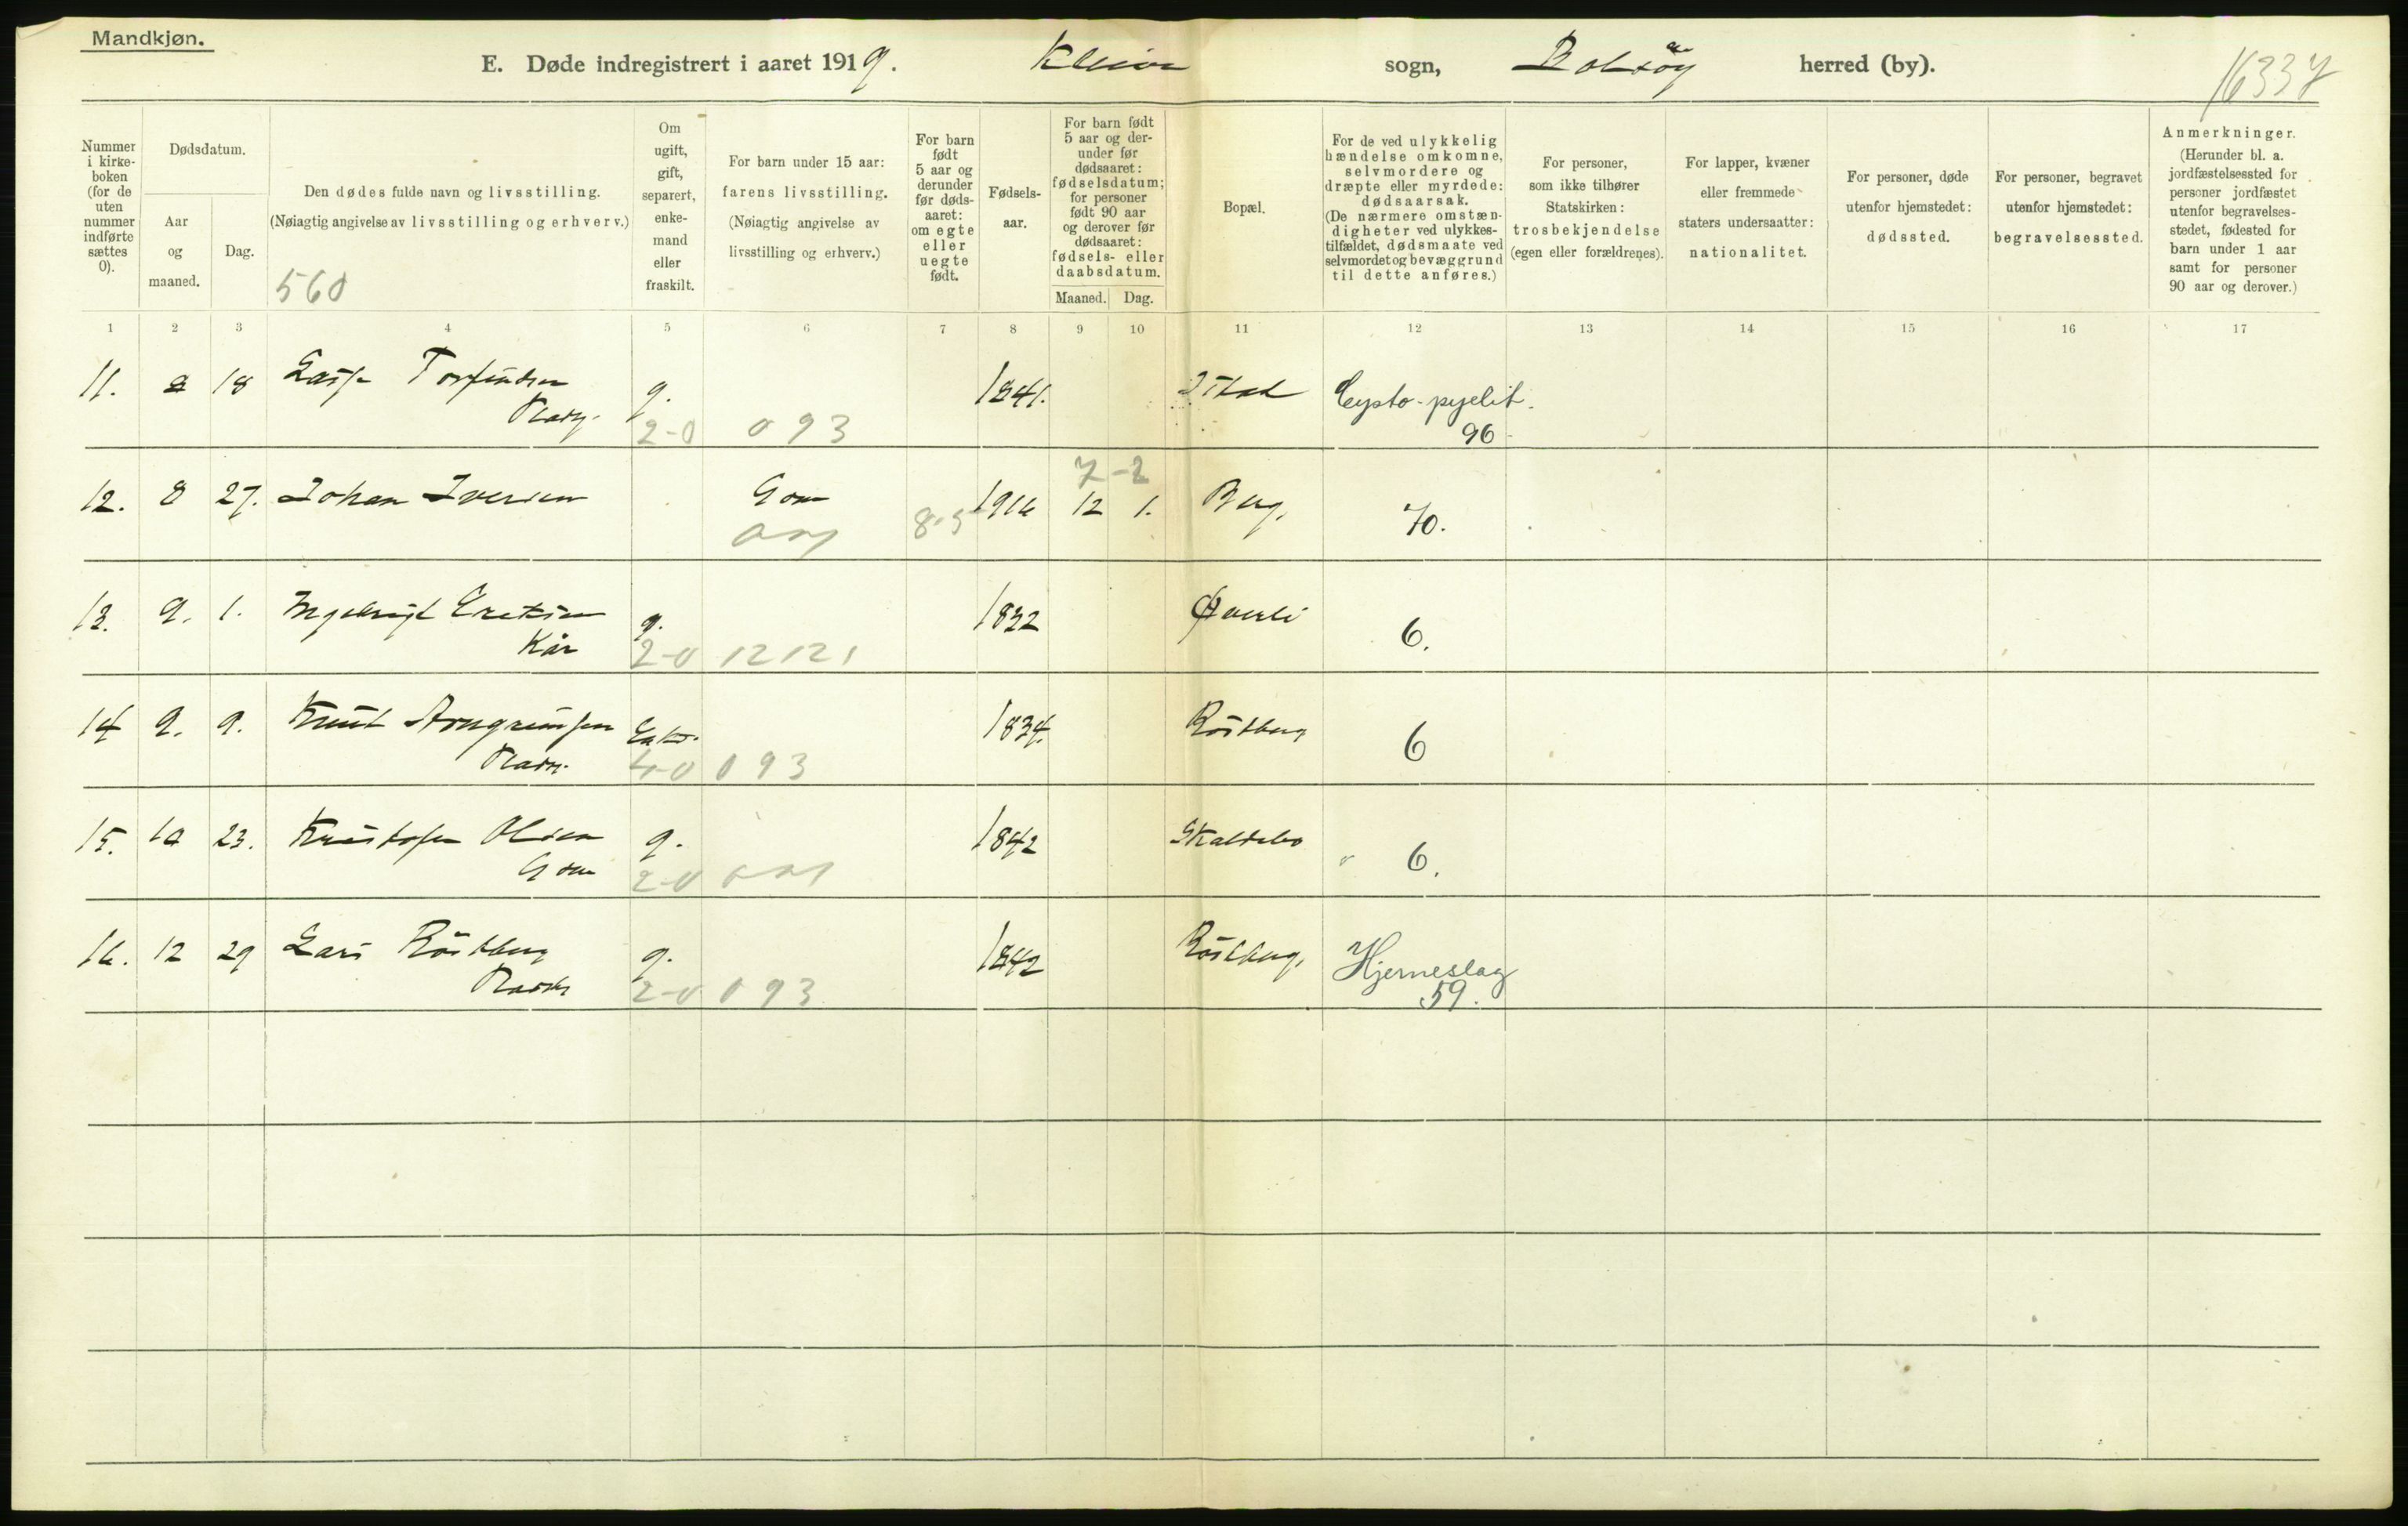 Mandkjøn.
E. Døde indregistrert i aaret 1919. Kleive sogn, Bolsøy herred (by).
16337
Nummer i kirke-boken (for de uten nummer indførte sættes 0).
Dødsdatum.
Aar og maaned.
Dag.
Den dødes fulde navn og livsstilling.
(Nøiagtig angivelse av livsstilling og erhverv.)
560
Om ugift, gift, separert, enke-mand eller fraskilt.
For barn under 15 aar: farens livsstilling.
(Nøiagtig angivelse av livsstilling og erhverv.)
For barn født 5 aar og derunder før døds-aaret: om egte eller uegte født.
Fødsels-aar.
For barn født 5 aar og der-under før dødsaaret: fødselsdatum; for personer født 90 aar og derover før dødsaaret: fødsels- eller daabsdatum.
Maaned. Dag.
Bopæl.
For de ved ulykkelig hændelse omkomne, selvmordere og dræpte eller myrdede: dødsaarsak.
(De nærmere omstæn-digheter ved ulykkes-tilfældet, dødsmaate ved selvmordet og bevæggrund til dette anføres.)
For personer, som ikke tilhører Statskirken: trosbekjendelse (egen eller forældrenes).
For lapper, kvæner eller fremmede staters undersaatter: nationalitet.
For personer, døde utenfor hjemstedet: dødssted.
For personer, begravet utenfor hjemstedet: begravelsessted.
Anmerkninger.
(Herunder bl. a. jordfæstelsessted for personer jordfæstet utenfor begravelses-stedet, fødested for barn under 1 aar samt for personer 90 aar og derover.)
1 2 3 4 5 6 7 8 9 10 11 12 13 14 15 16 17
11. 8 18 Lasse Torfindsen g. 1841. Cysto-pyelit.
2-0 093 96
7-2
12. 8 27. Johan Iversen Gbr 1916 12 1. Berg. 70.
8.5
13. 9. 1. Ingebrigt Eriksen g. 1832 Øverli 6.
Kår 2-0 12121
14 9. 9. Knut Arngrimsen Enkm. 1834. Röstberg 6
4-0 093
15. 10 23. Kristofer Olsen g. 1842 Skaldebo 6.
Gbr 2-0
16. 12 29 Lars Röstberg g. 1842 Röstberg. Hjerneslag
2-0 093 59.